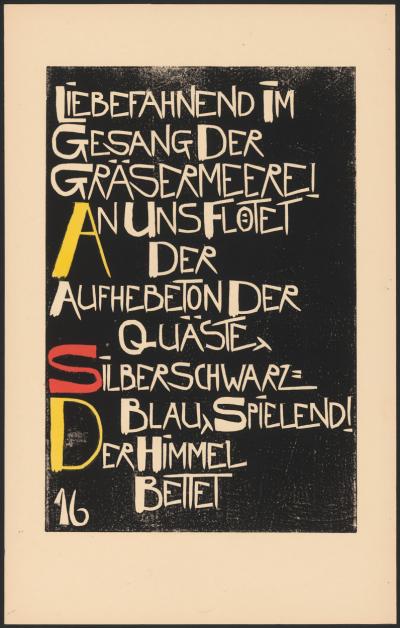 LIEBEFAHNEND IM
GESANG DER
GRÄSERMEERE!
AN UNS FLÖTET
DER
AUFHEBETON DER
QUÄSTE,
SILBERSCHWARZ=
BLAU, SPIELEND!
DER HIMMEL
BETTET
16